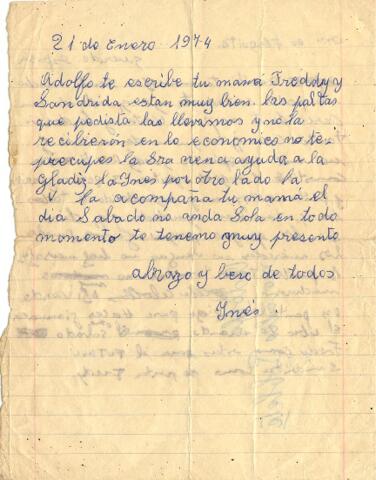 21 de Enero 1974
Adolfo te escribe tu mamá Freddy y
Sandrida estan muy bien. las paltas
que pedista las llevamos y no la
recibierón en lo economico no te
precupes la Sra nena ayuda a la
Gladis la Ines por otro lado la
V la acompaña tu mamá el
día Sabado no anda Sola en todo
momento te tenemo muy presente
abrazo y beso de todos
Inés.